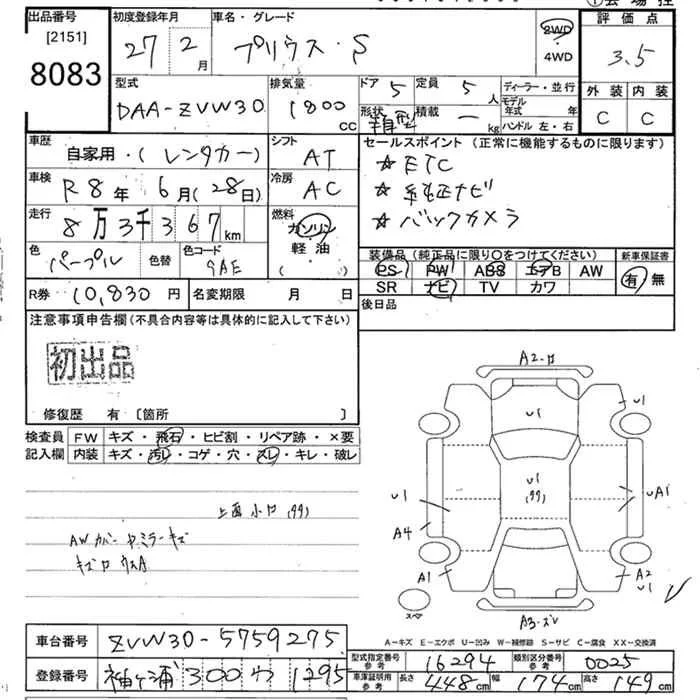 出品番号 [2151] 8083
初度登録年月 27年 2月
車名・グレード プリウス・S
2WD ・ 4WD
評価点 3.5
外装 C 内装 C
型式 DAA-ZVW30
排気量 1800 cc
ドア 5
形状 箱型
定員 5 人
積載 ー kg
ディーラー・並行
モデル年式 年
ハンドル 左・右
車歴 自家用・(レンタカー)
シフト AT
セールスポイント (正常に機能するものに限ります)
☆ ETC
☆ 純正ナビ
☆ バックカメラ
車検 R8年 6月(28日)
冷房 AC
走行 8万3千367km
燃料 ガソリン 軽・油 ( ・ )
色 パープル
色替
色コード 9AE
装備品 (純正品に限り○をつけてください)
PS PW ABS エアB AW
SR ナビ TV カワ
新車保証書 有・無
R券 10,830 円
名変期限 月 日
後日品
注意事項申告欄 (不具合内容等は具体的に記入して下さい)
初出品
修復歴 有 〔箇所 〕
検査員記入欄
FW キズ・飛石・ヒビ割・リペア跡・×要
内装 キズ・汚レ・コゲ・穴・スレ・キレ・破レ
AW カバー ドミラーキズ
A2-ロ
U1
U1
U1
U1
(99)
U1
UA1
A4
A1
A2
U1
スペア
A-キズ E-エクボ U-凹み W-補修跡 S-サビ C-腐食 XX-交換済
車台番号 ZVW30-5759275
登録番号 袖ヶ浦 300 わ 1295
型式指定番号 参考 16294
類別区分番号 参考 0025
車庫証明用 参考 長さ 448cm 幅 174cm 高さ 149cm